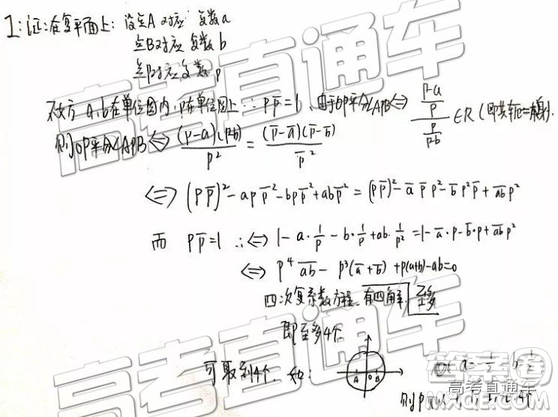 1:证:在复平面上:设点A对应复数a
点B对应复数b
点P对应复数p
不妨A,B在单位圆内,P在单位圆上 ∴ pp̅=1 由于OP平分∠APB⇔ \frac{\frac{p-a}{p}}{\frac{p}{p-b}} ∈R(即其共轭=本身)
则OP平分∠APB⇔ \frac{(p-a)(p-b)}{p^2} = \frac{(p̅-a̅)(p̅-b̅)}{p̅^2}
⇔ (pp̅)^2-app̅^2-bpp̅^2+abp̅^2=(pp̅)^2-a̅p̅p^2-b̅p^2p̅+\overline{ab}p^2
而 pp̅=1 ∴⇔ 1-a·\frac{1}{p}-b·\frac{1}{p}+ab·\frac{1}{p^2}=1-a̅·p-b̅·p+\overline{ab}p^2
⇔ p^4\overline{ab}-p^3(a̅+b̅)+p(a+b)-ab=0
四次复系数方程 有四解 至多
即至多4个
可取到4个 如:
A O B
高考直通车